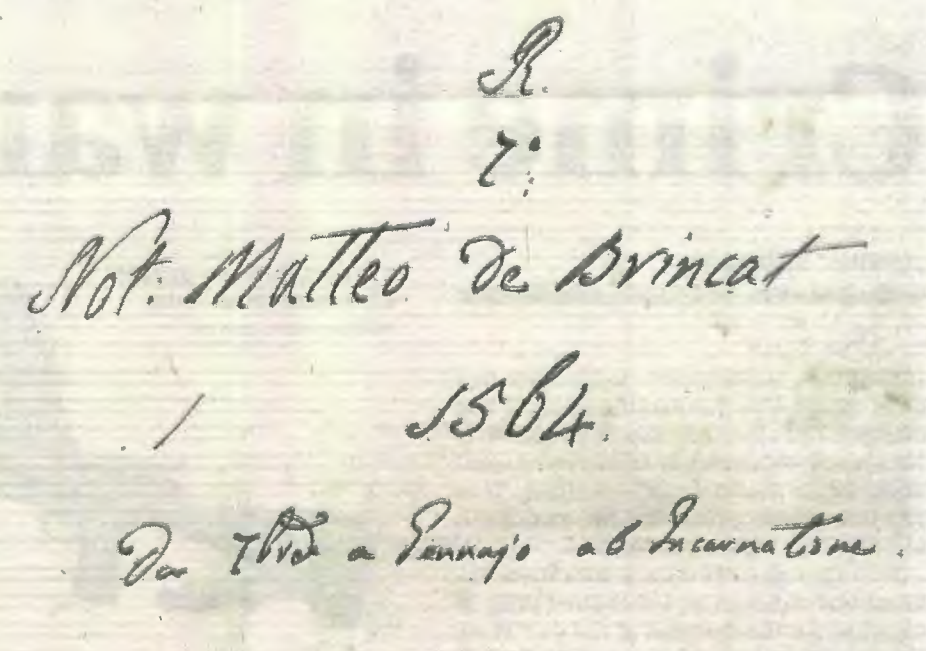 R.
7º:
Not: Matteo De Brincat
1564.
Da 7bre a Gennajo ab Incarnatione.